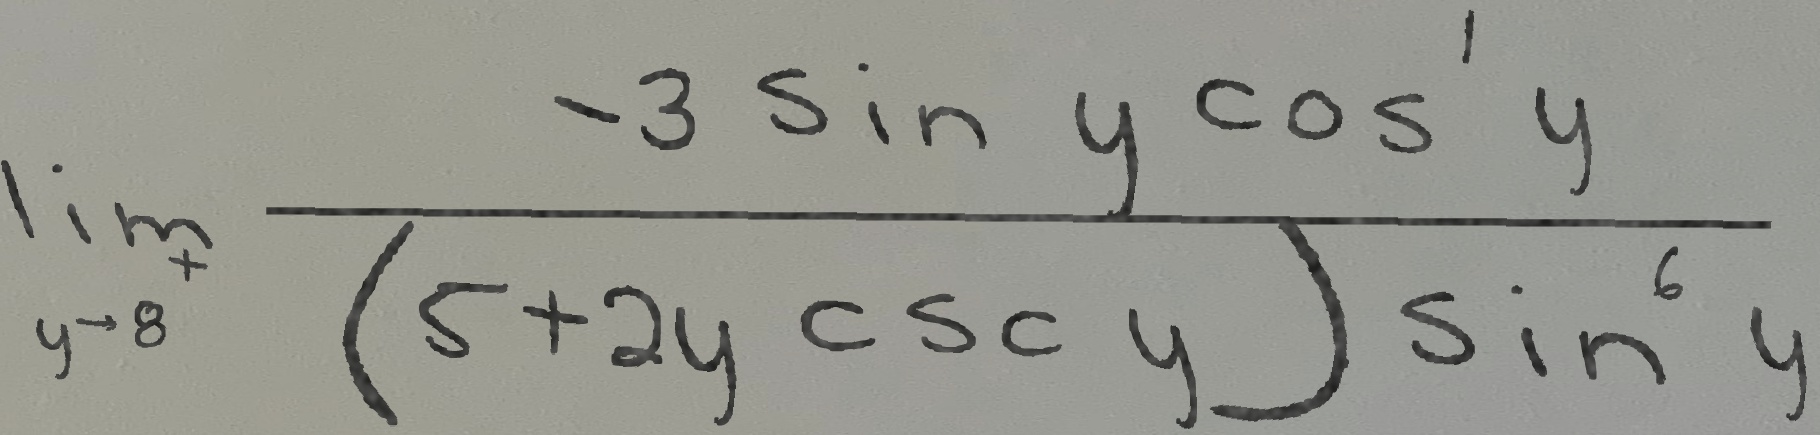 \lim_{y \to 8^+} \frac{-3 \sin y \cos^1 y}{(5+2y \csc y) \sin^6 y}